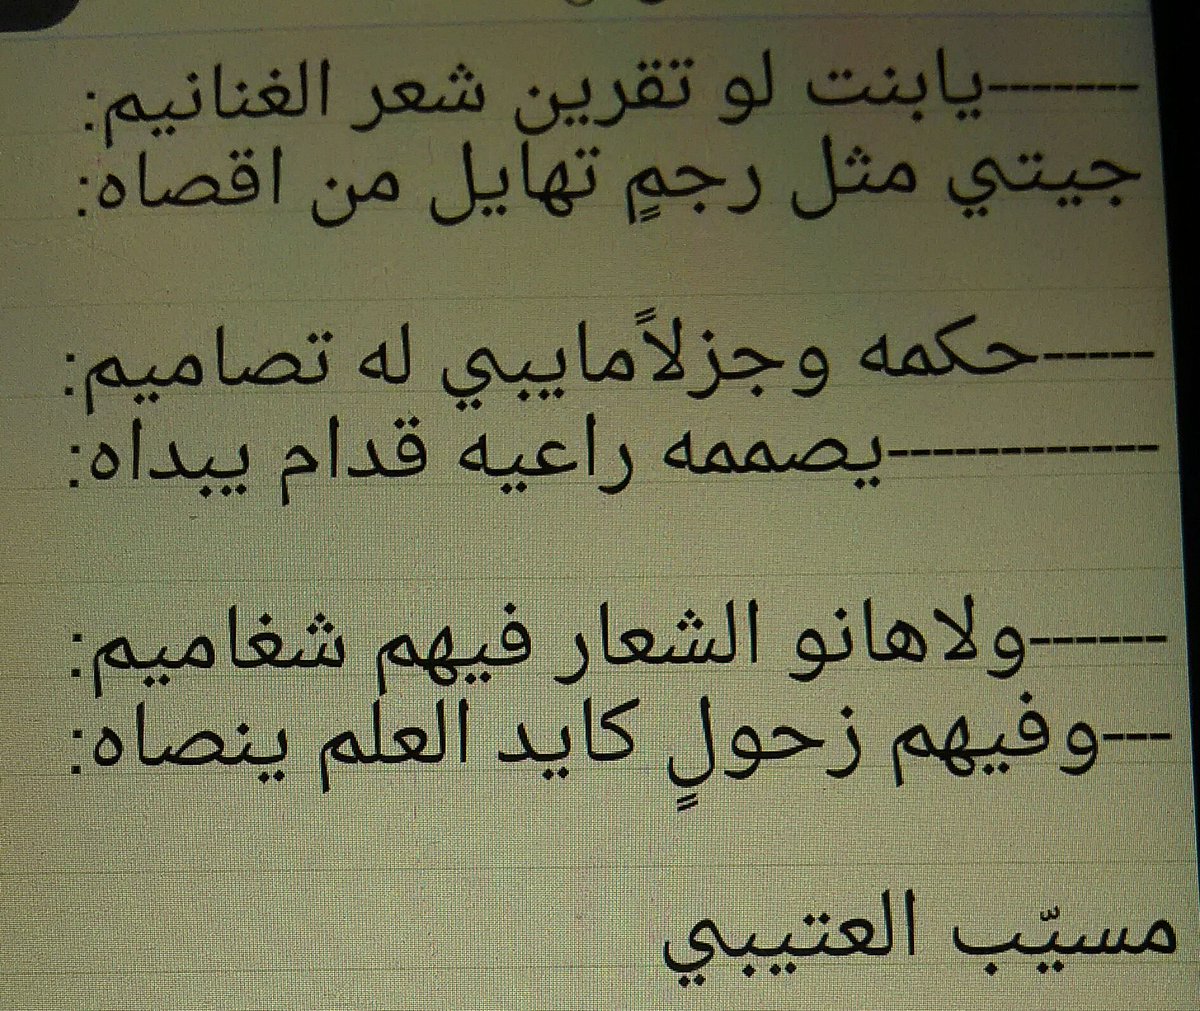 -------يابنت لو تقرين شعر الغنانيم:
جيتي مثل رجمٍ تهايل من اقصاه:
-----حكمه وجزلاًمايبي له تصاميم:
------------يصممه راعيه قدام يبداه:
------ولاهانو الشعار فيهم شغاميم:
---وفيهم زحولٍ كايد العلم ينصاه:
مسيّب العتيبي